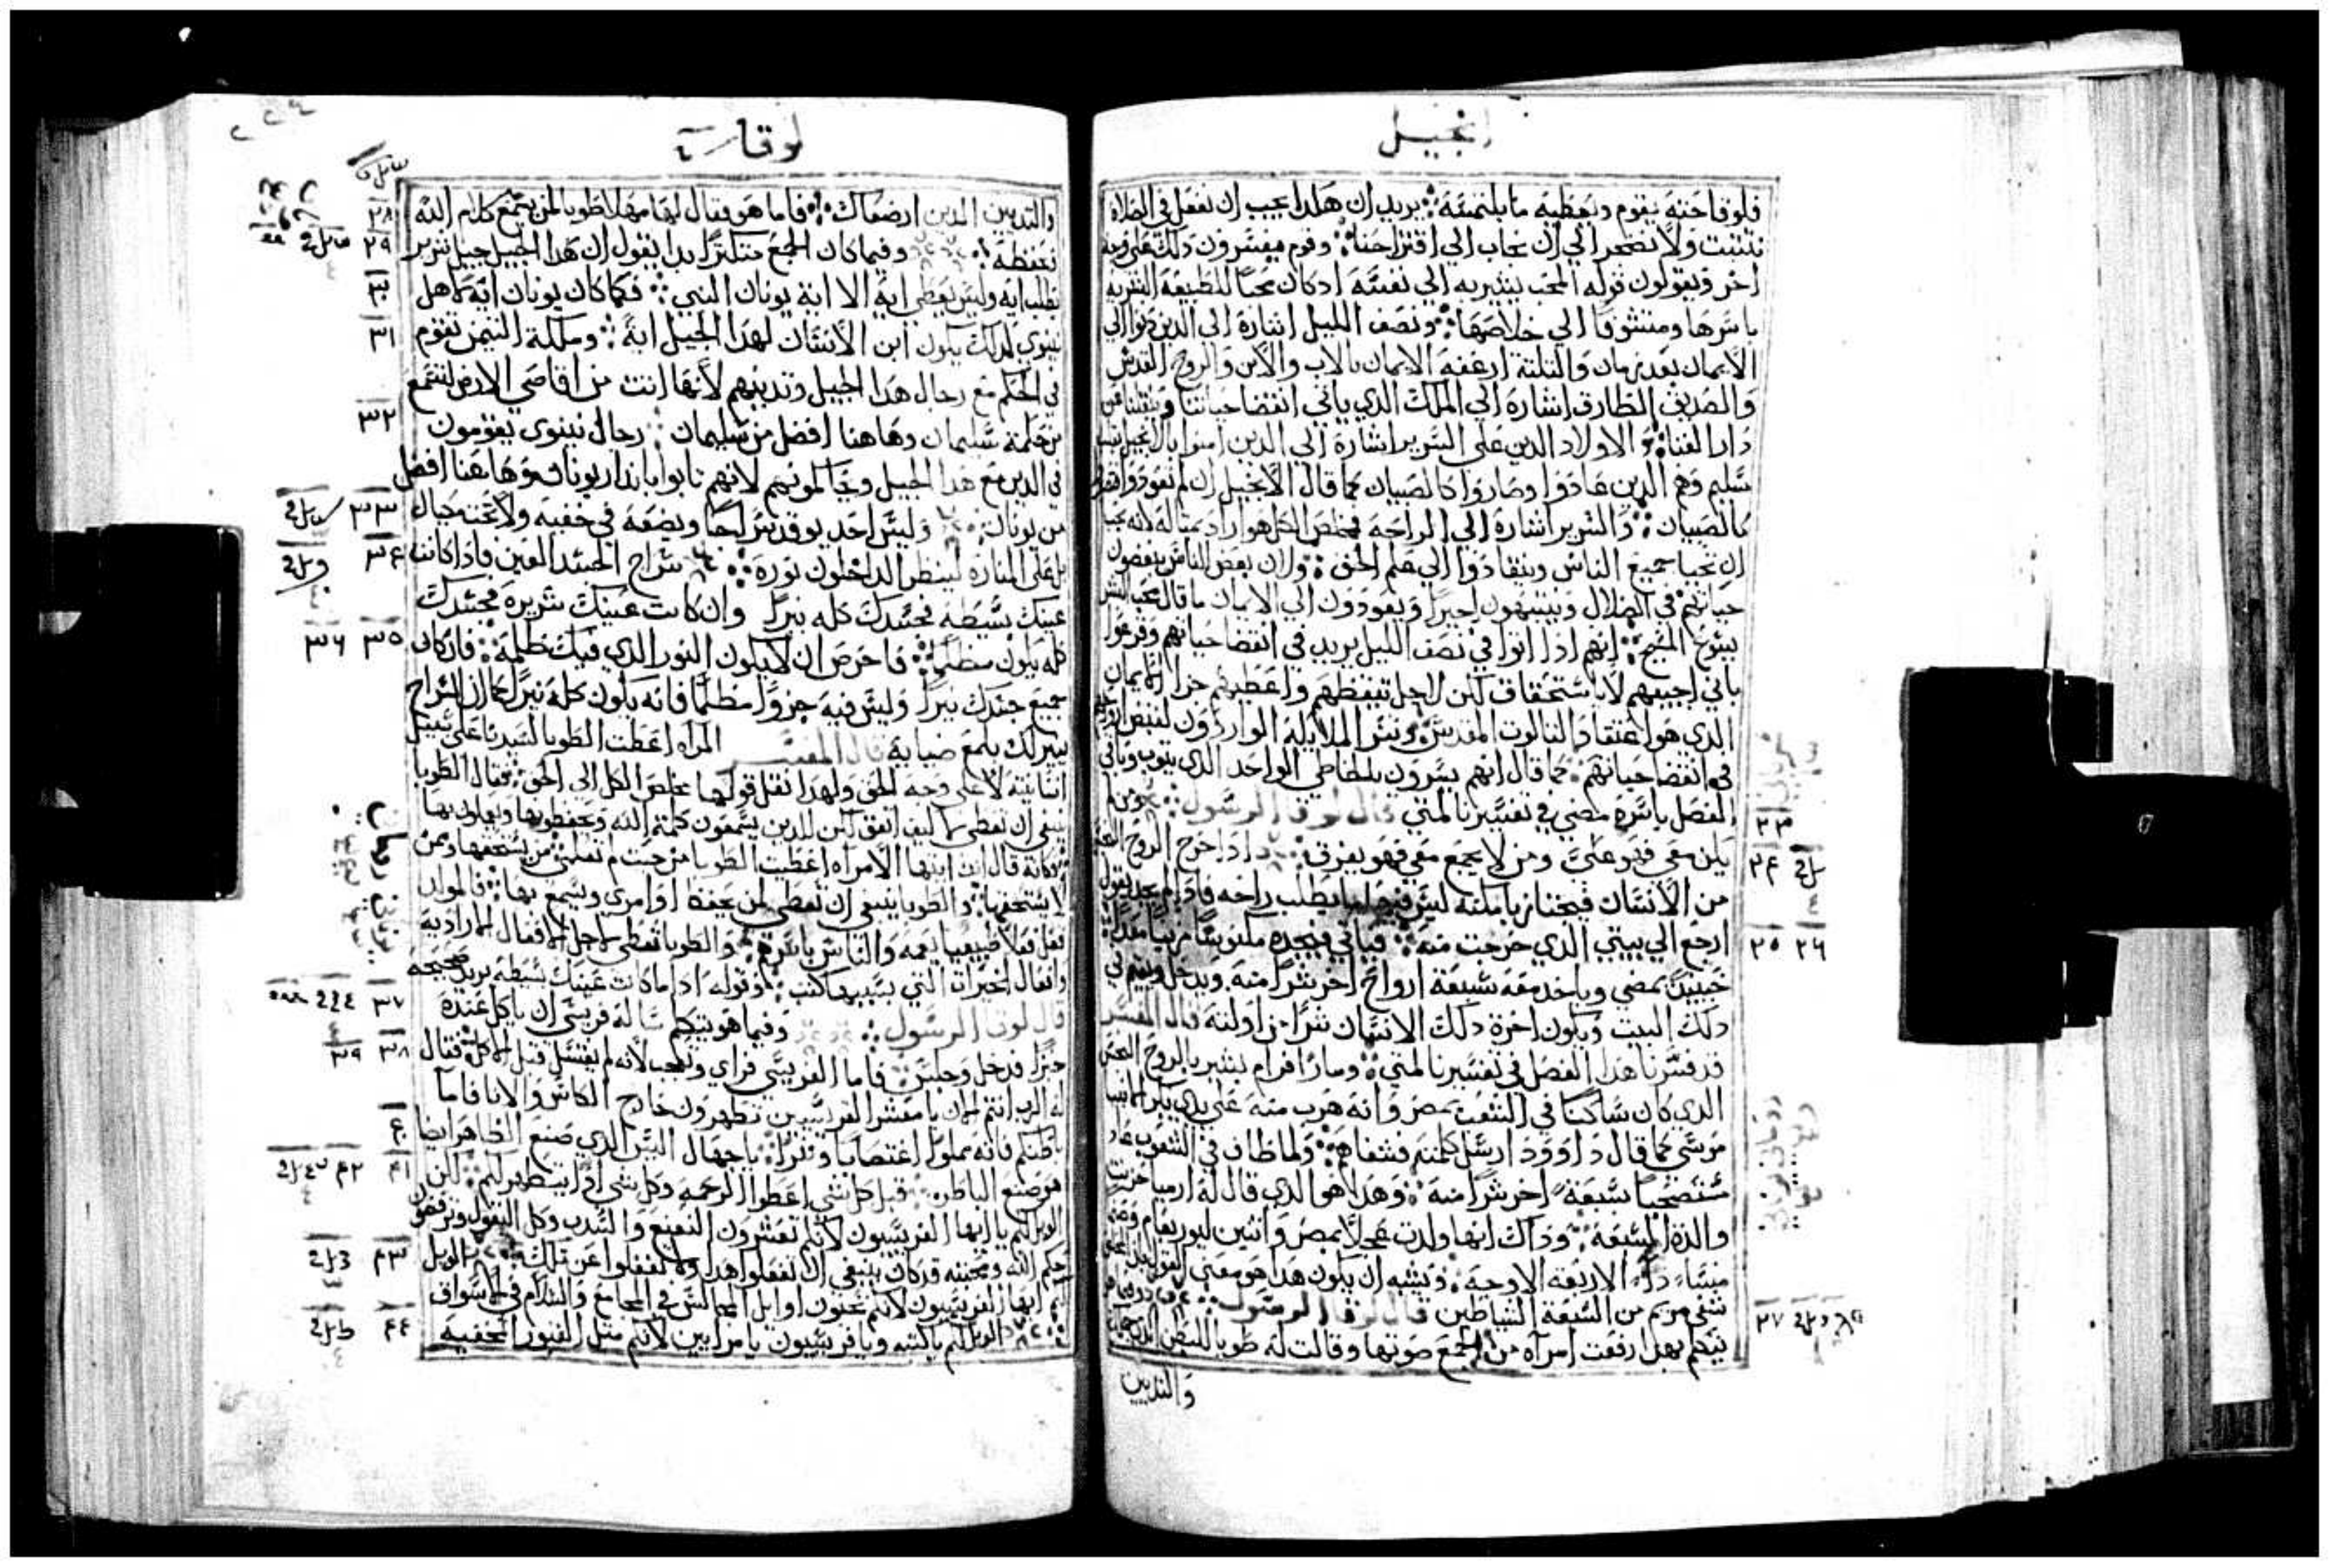 انجيل
فلوقاحته يقوم ويعطيه ما يلتمسه ܀ يريد ان هكذا يجب ان نفعل في الصلاة
نتثبت ولا نضجر الي ان نجاب الي اقتراحنا ܀ وقوم يفسرون ذلك علي وجه
اخر ويقولون قوله المحب يشير به الي نفسه اذ كان محبا للطبيعة البشرية
باسرها ومتشوقا الي خلاصها ܀ ونصف الليل اشارة الي الذين دنوا الي
الايمان بعد زمان والثلثة ارغفة الايمان بالاب والابن والروح القدس
والصديق الطارق اشارة الي الملك الذي ياتي انقضا حياتنا وينقلنا من
دار الفنا ܀ والاولاد الذين علي السرير اشارة الي الذين امنوا بالانجيل
سليم وهم الذين عادوا وصاروا كالصبيان كما قال الانجيل ان لم تعودوا
كالصبيان ܀ والسرير اشارة الي الراحة فمخلص الكل هو اراد
ان يحيا جميع الناس وينقادوا الي علم الحق ܀ ولان بعض الناس ينقضون
حياتهم في الضلال وينتبهون اخيرا ويعودون الي الايمان ما قال
يشوع المسيح ܀ انهم اذا اتوا في نصف الليل يريد في انقضا حياتهم وقرعوا
باني اجيبهم لا باستحقاق لكن لاجل تيقظهم واعطيهم خبز الايمان
الذي هو اعتقاد الثالوث المقدس ܀ الملايكة الواردون لقبض
في انقضا حياتهم ܀ كما قال انهم يسرون بالخاطي الواحد الذي يتوب وباقي
الفصل باسره مضي في تفسيرنا لمتي قال لوقا الرسول ܀ ومن لم
يكن معي فهو علي ومن لا يجمع معي فهو يفرق ܀ واذا خرج الروح
من الانسان فيجتاز باماكنه ليس فيها ما يطلب راحه فاذا لم يجد يقول
ارجع الي بيتي الذي خرجت منه ܀ فياتي فيجده مكنوسا مزينا
حينيذ يمضي وياخد معه سبعة ارواح اخر شرا منه ويدخل ويقيم في
ذلك البيت ويكون اخرة ذلك الانسان شرا من اولته قال المفسر
قد فسرنا هذا الفصل في تفسيرنا لمتي ܀ ومار افرام يشير بالروح
الذي كان ساكنا في الشعب بمصر وانه هرب منه علي يدي
موسي كما قال داوود ارسل كلمته فشفاهم ܀ ولما طاف في الشعوب
مستصحبا سبعة اخر شرا منه ܀ وهذا هو الذي قال له ارميا
والدة السبعة ܀ وذاك انها ولدت عجلا بمصر واثنين ليوربعام
الاربعة الاوجه ܀ ويشبه ان يكون هذا هو معني القول
شفي مريم من السبعة الشياطين قال لوقا الرسول ܀
يتكلم بهذا رفعت امرآة من الجمع صوتها وقالت له طوبا للبطن الذي
والثديين
٣٣
٣٤
٣٥ ٣٦
٣٧
لوقا
والثديين الذين ارضعاك ܀ فاما هو فقال لها مهلا طوبا لمن يسمع كلام الله
يحفظه ܀ وفيما كان الجمع متكثرا بدا يقول ان هذا الجيل جيل شرير
يطلب اية وليس يعطي اية الا اية يونان النبي ܀ فكما كان يونان اية لاهل
نينوي كذلك يكون ابن الانسان لهذا الجيل اية ܀ وملكة التيمن تقوم
في الحكم مع رجال هذا الجيل وتدينهم لانها اتت من اقاصي الارض لتسمع
من حكمة سليمان وهاهنا افضل من سليمان ܀ رجال نينوي يقومون
في الدين مع هذا الجيل ويحاكمونهم لانهم تابوا بانذار يونان وهاهنا افضل
من يونان ܀ وليس احد يوقد سراجا ويضعه في خفيه ولا تحت مكيال
بل علي المنارة لينظر الداخلون نوره ܀ سراج الجسد العين فاذا كانت
عينك بسيطة فجسدك كله نيرا وان كانت عينك شريرة فجسدك
كله يكون مظلما ܀ فاحرص ان لا يكون النور الذي فيك ظلمة ܀ فان كان
جميع جسدك نيرا وليس فيه جزوا مظلما فانه يكون كله نيرا كما ان السراج
ينير لك بلمع ضيايه قال المفسر المرآه اعطت الطوبا لسيدنا علي سبيل
انسانيته لا علي وجه الحق ولهذا نقل قولها مخلص الكل الي الحق ܀ فقال الطوبا
ينبغي ان تعطي لكن للذين يسمعون كلمة الله ويحفظونها ويعملون بها
وكانه قال انت ايتها الامراه اعطيت الطوبا من حيث لم تعلمي من يستحقها ومن
لا يستحقها ܀ والطوبا ينبغي ان تعطي لمن يحفظ اوامري ويسمع بها ܀
فعل فعلا طبيعيا يعمه والناس باسرهم ܀ والطوبا تعطي لاجل الافعال الارادية
وافعال الخيرات التي بسببها ܀ وقوله اذا ما كانت عينك بسيطة يريد صحيحة
قال لوقا الرسول ܀ وفيما هو يتكلم ساله فريسي ان ياكل عنده
خبزا فدخل وجلس ܀ فاما الفريسي فراي وتعجب لانه لم يغتسل قبل الاكل ܀ فقال
له الرب انتم الان يا معشر الفريسيين تطهرون خارج الكاس والانا فاما
باطنكم فانه مملوا اغتصابا وشرا ܀ يا جهال اليس الذي صنع الظاهر ايضا
هو صنع الباطن ܀ قبل كل شي اعطوا الرحمة وكل شي يتطهر لكم ܀ لكن
الويل لكم يا ايها الفريسيون لانكم تعشرون النعنع والسذب وكل البقول وترفضون
حكم الله ومحبته قد كان ينبغي ان تفعلوا هذا ولا تغفلوا عن تلك ܀ الويل
لكم ايها الفريسيون لانكم تحبون اوايل المجالس في المجامع والسلام في الاسواق
الويل لكم يا كتبه ويا فريسيون يا مرايين لانكم مثل القبور المخفيه
٢٨
٢٩
٣٠
٣١
٣٢
٣٣
٣٤
٣٥ ٣٦
٣٧
٣٨ ٣٩
٤٠
٤١ ٤٢
٤٣
٤٤